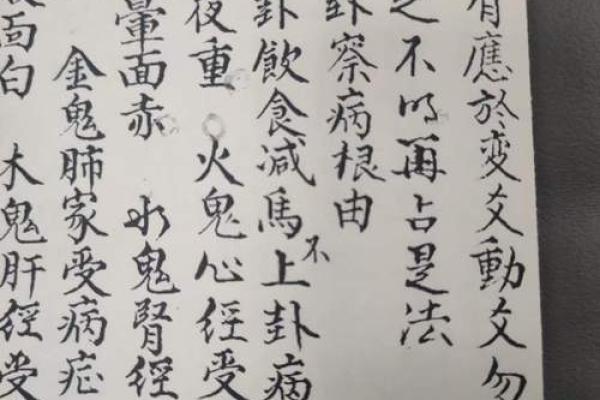 有應於变爻動爻勿
之不明再占是法
卦察病根由
卦飲食减馬不上卦病
夜重 火鬼心經受
暈面赤 水鬼腎經
金鬼肺家受病症
面白 木鬼肝經受